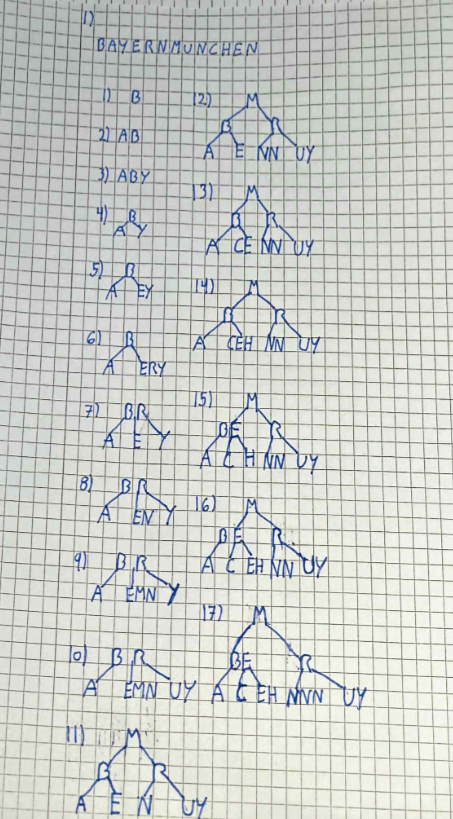 1)
BAYERNMUNCHEN
1) B
2) AB
3) ABY
4) B
A Y
5) B
A EY
6) B
A ERY
7) BR
A E Y
8) BR
A EN Y
9) BR
A EMN Y
10) BR
A EMN UY
11) M
B R
A E N UY
12) M
B R
A E NN UY
13) M
B R
A CE NN UY
14) M
B R
A CEH NN UY
15) M
BE R
A C H NN UY
16) M
BE R
A C EH NN UY
17) M
BE R
A C EH NNN UY